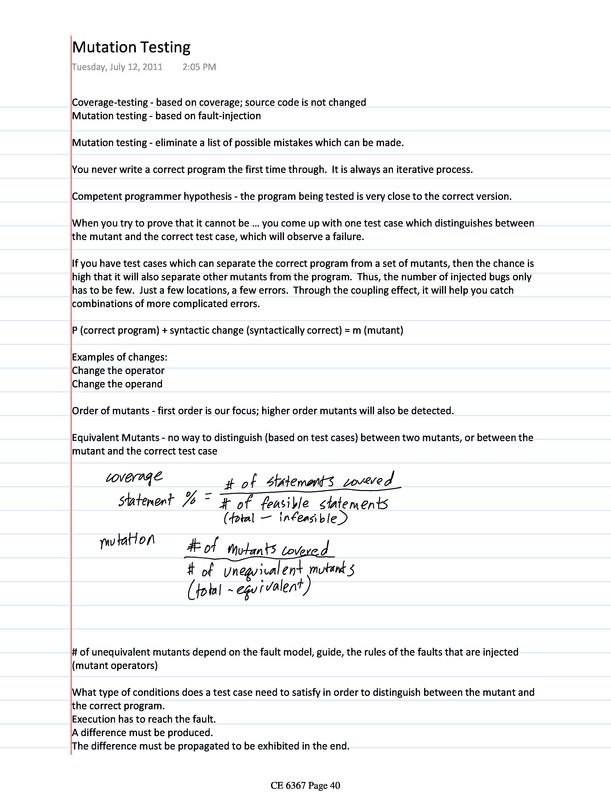 Mutation Testing
Tuesday, July 12, 2011 2:05 PM
Coverage-testing - based on coverage; source code is not changed
Mutation testing - based on fault-injection
Mutation testing - eliminate a list of possible mistakes which can be made.
You never write a correct program the first time through. It is always an iterative process.
Competent programmer hypothesis - the program being tested is very close to the correct version.
When you try to prove that it cannot be ... you come up with one test case which distinguishes between
the mutant and the correct test case, which will observe a failure.
If you have test cases which can separate the correct program from a set of mutants, then the chance is
high that it will also separate other mutants from the program. Thus, the number of injected bugs only
has to be few. Just a few locations, a few errors. Through the coupling effect, it will help you catch
combinations of more complicated errors.
P (correct program) + syntactic change (syntactically correct) = m (mutant)
Examples of changes:
Change the operator
Change the operand
Order of mutants - first order is our focus; higher order mutants will also be detected.
Equivalent Mutants - no way to distinguish (based on test cases) between two mutants, or between the
mutant and the correct test case
coverage
statement % = # of statements covered
# of feasible statements
(total - infeasible)
mutation
# of mutants covered
# of unequivalent mutants
(total - equivalent)
# of unequivalent mutants depend on the fault model, guide, the rules of the faults that are injected
(mutant operators)
What type of conditions does a test case need to satisfy in order to distinguish between the mutant and
the correct program.
Execution has to reach the fault.
A difference must be produced.
The difference must be propagated to be exhibited in the end.
CE 6367 Page 40